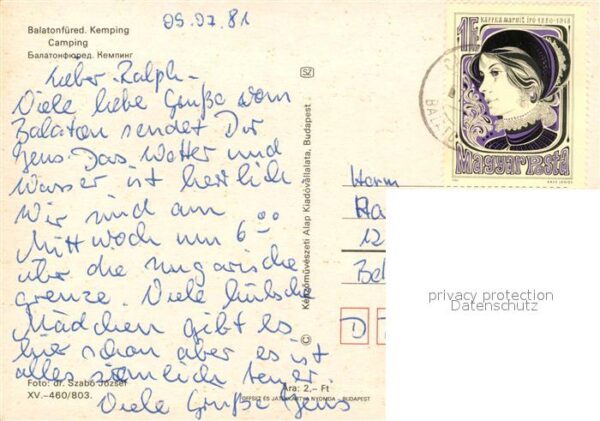 05.07.81
Balatonfüred. Kemping
Camping
Балатонфюред. Кемпинг
Lieber Ralph-
Viele liebe Grüße vom
Balaton sendet Dir
Jens. Das Wetter und
Wasser ist herrlich
Wir sind am
Mittwoch um 6⁰⁰
über die ungarische
grenze. Viele hübsche
Mädchen gibt es
hier schon aber es ist
alles ziemlich teuer.
Viele Grüße Jens
Foto: dr. Szabó József
XV.–460/803.
Ára: 2,– Ft
OFFSET ÉS JÁTÉKKÁRTYA NYOMDA – BUDAPEST
SZ
© Képzőművészeti Alap Kiadóvállalata, Budapest
KAFFKA MARGIT ÍRÓ 1880-1918
1Ft
Magyar Posta
Herrn
Ra
12
D
privacy protection
Datenschutz